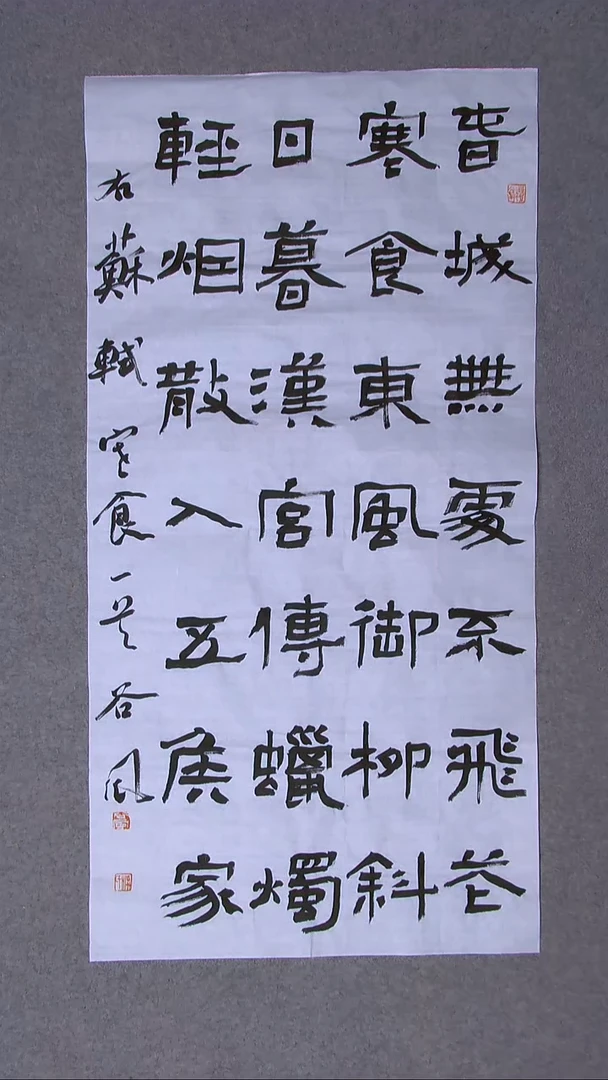 春城無處不飛花
寒食東風御柳斜
日暮漢宮傳蠟燭
輕烟散入五侯家
右蘇軾寒食一首谷风